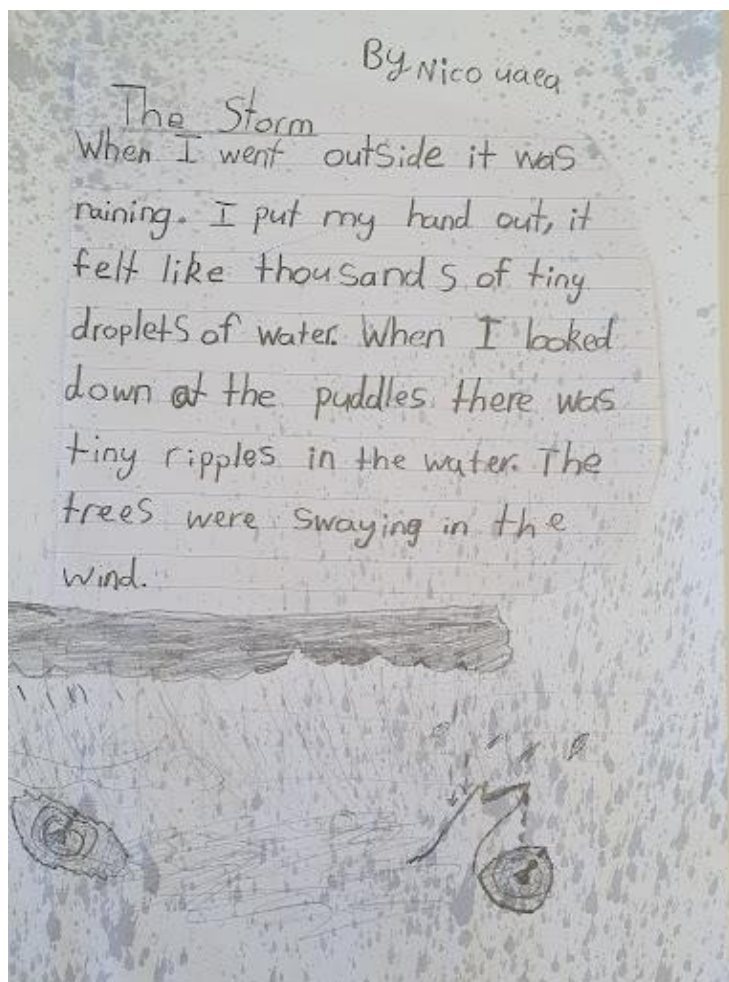 By Nico
The Storm
When I went outside it was
raining. I put my hand out, it
felt like thousands of tiny
droplets of water. When I looked
down at the puddles there was
tiny ripples in the water. The
trees were swaying in the
wind.